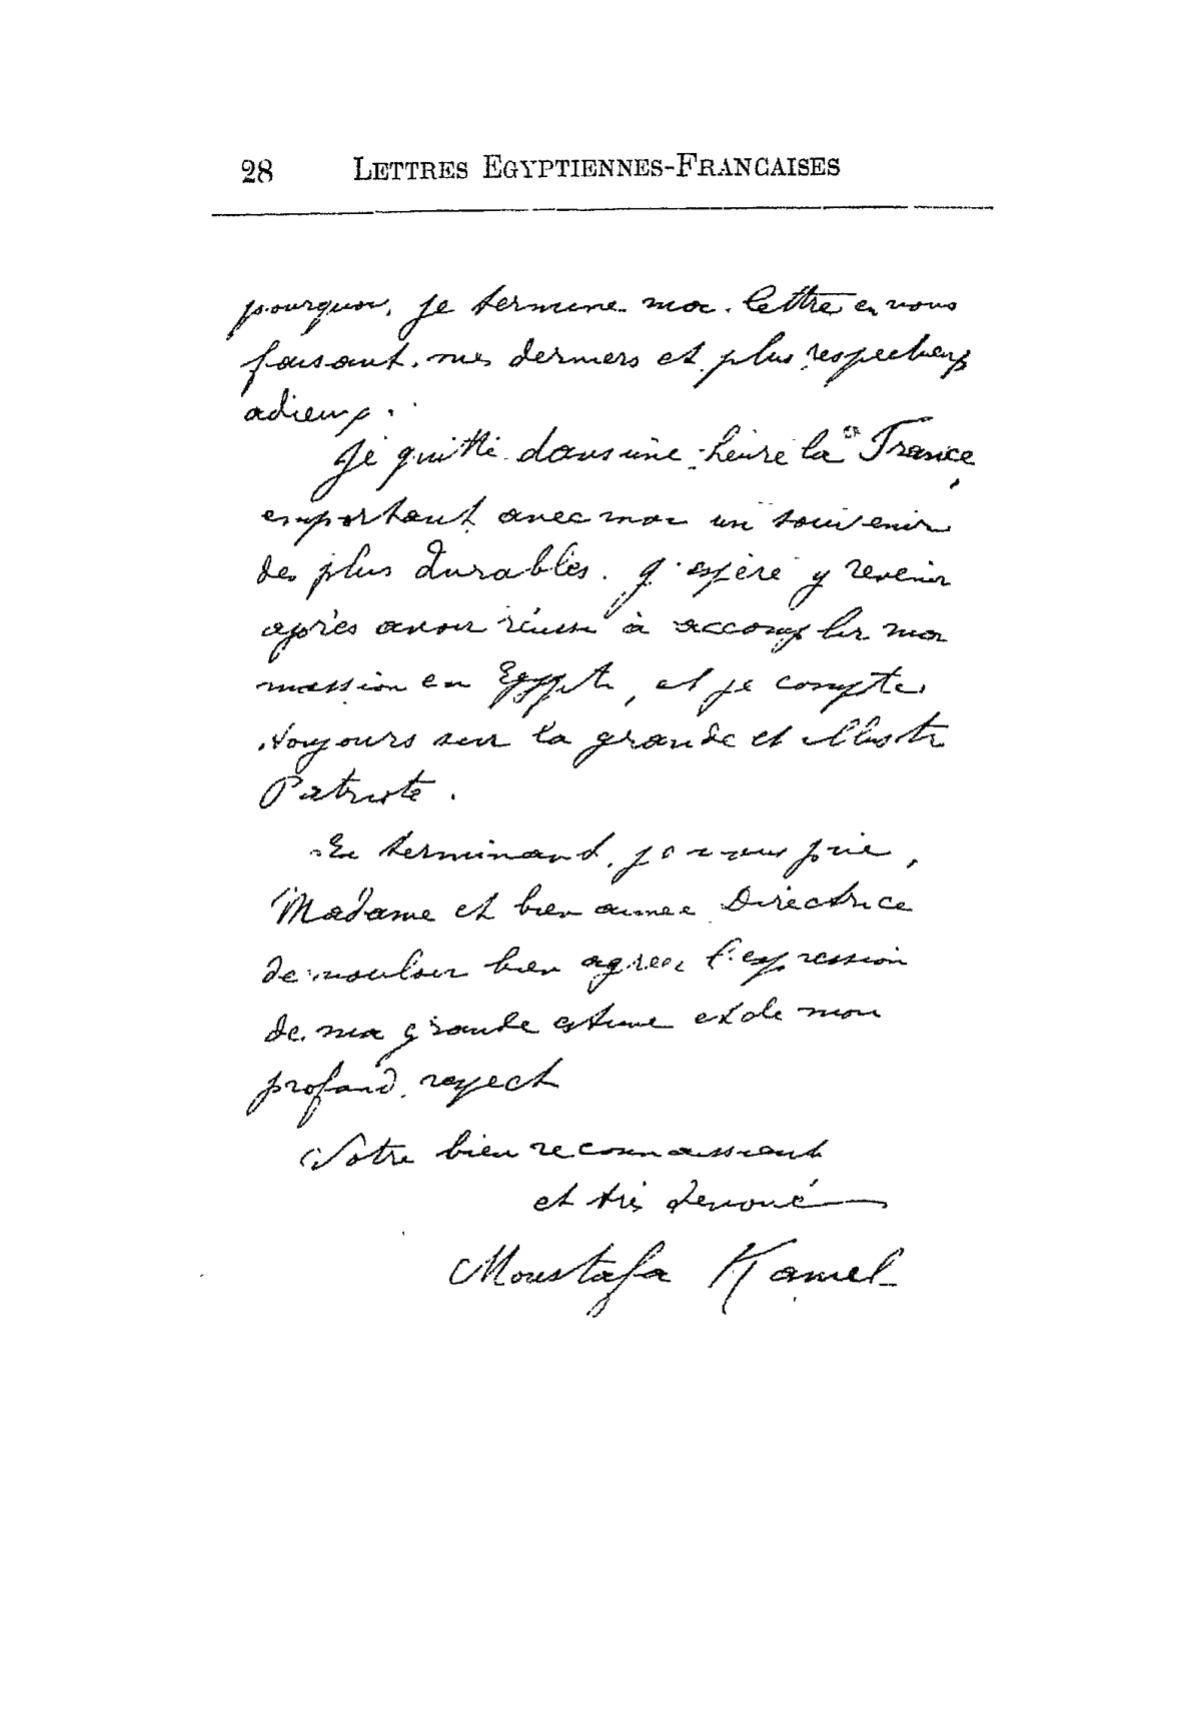 28 LETTRES EGYPTIENNES-FRANCAISES
pourquoi, je termine ma lettre en vous
faisant mes derniers et plus respectueux
adieux.
Je quitte dans une heure la France,
emportant avec moi un souvenir
des plus durables. J'espère y revenir
après avoir réussi à accomplir ma
mission en Egypte, et je compte
toujours sur la grande et illustre
Patriote.
En terminant, je vous prie,
Madame et bien aimée Directrice
de vouloir bien agréer l'expression
de ma grande estime et de mon
profond respect
Votre bien reconnaissant
et très dévoué
Moustafa Kamel